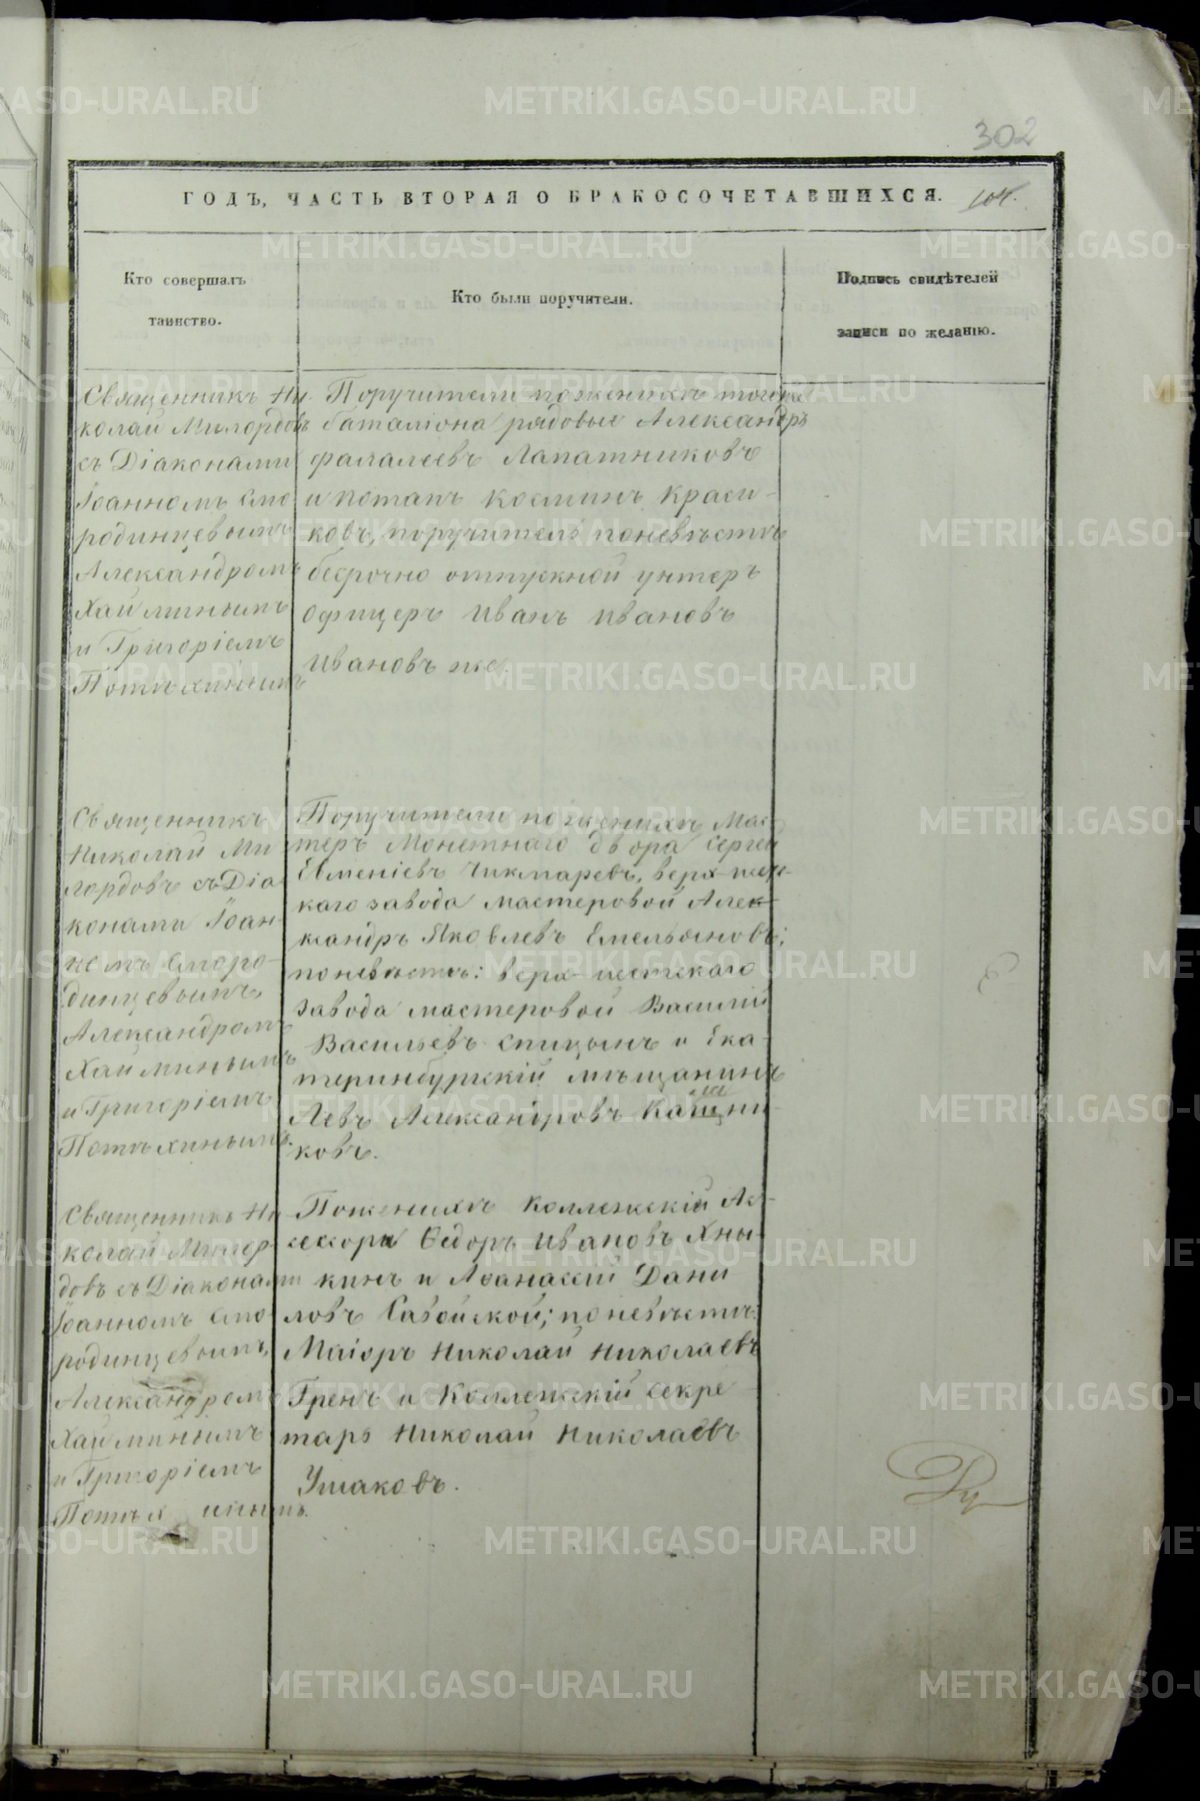 302
ГОДЪ, ЧАСТЬ ВТОРАЯ О БРАКОСОЧЕТАВШИХСЯ. 104.
Кто совершалъ
таинство.
Кто были поручители.
Подпись свидѣтелей
записи по желанію.
Священникъ Ни
колай Милордовъ
съ Діаконами
Іоанномъ Смо
родинцевымъ
Александромъ
Хайминымъ
и Григоріемъ
Потѣхинымъ
Поручители по женихѣ тогоже
баталіона рядовые Александръ
Фалалеевъ Лапатниковъ
и Потапъ Косминъ Краси-
ковъ, поручитель по невѣстѣ
безрочно отпускной унтеръ
офицеръ Иванъ Ивановъ
Ивановъ же.
Священникъ
Николай Ми
лордовъ съ Діа
конами Іоан-
номъ Сморо-
динцевымъ,
Александромъ
Хайминымъ
и Григоріемъ
Потѣхинымъ.
Поручители по женихѣ Мас-
теръ Монетнаго двора Сергей
Евменіевъ Чикмаревъ, верх-исет-
каго завода мастеровой Алек-
ксандръ Яковлевъ Емельяновъ;
по невѣстѣ: верх-исетскаго
завода мастеровой Василій
Васильевъ Спицынъ и Ека-
теринбургскій мѣщанинъ
Левъ Александровъ
ковъ.
Священникъ Ни
колай Милор-
довъ съ Діаконами
Іоанномъ Смо
родинцевымъ,
Александромъ
Хайминымъ
и Григоріемъ
Потѣхинымъ.
По женихѣ Коллежскій Ас-
сесоръ Ѳедоръ Ивановъ Хны-
кинъ и Аѳанасій Дани
ловъ Савойской; по невѣстѣ:
Маіоръ Николай Николаевъ
Гренъ и Коллежскій секре
тарь Николай Николаевъ
Ушаковъ.
METRIKI.GASO-URAL.RU